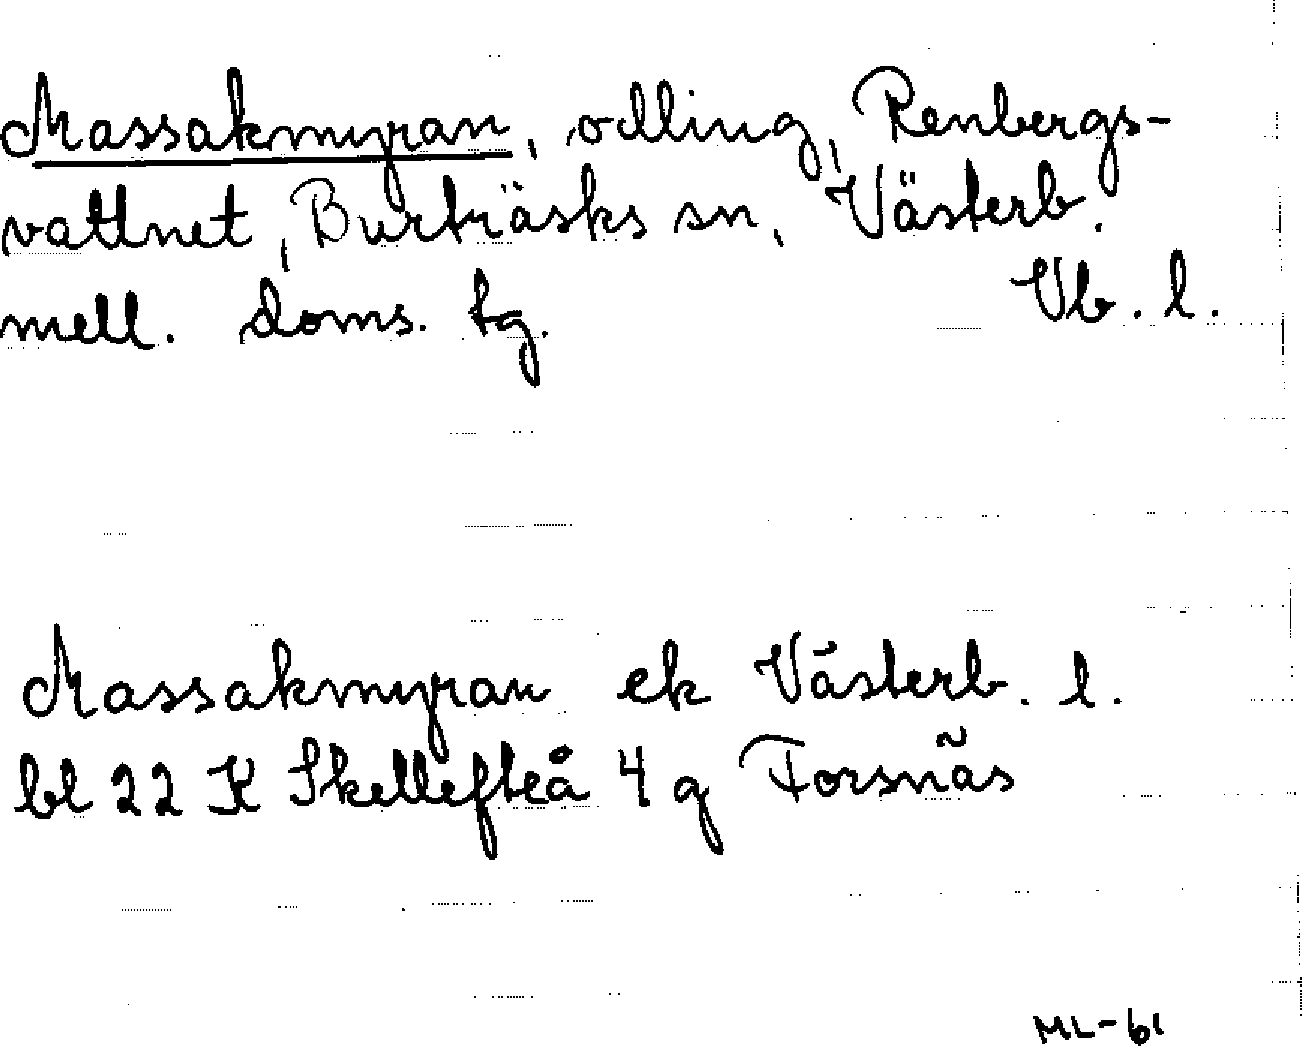 Massakmyran, odling, Renbergs-
vattnet, Burträsks sn, Västerb.
mell. doms. tg. Vb. l.
Massakmyran ek Västerb. l.
bl 22 K Skellefteå 4 g Forsnäs
ML-61